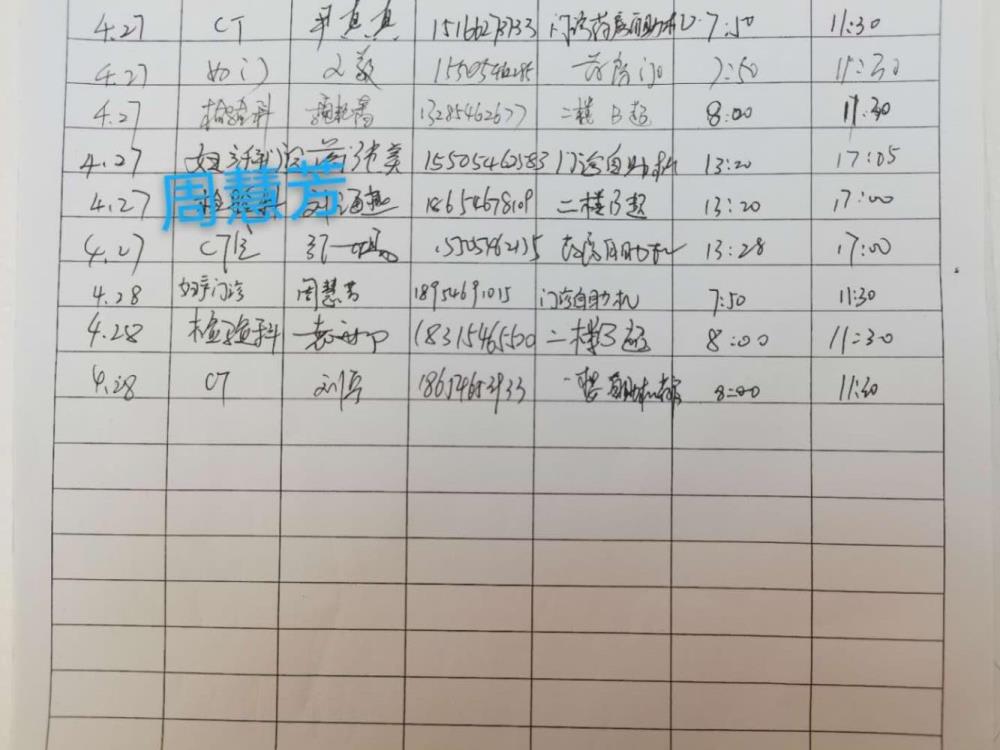 4.27 CT 15166273733 门诊药房自助机 7:50 11:30
4.27 妇门 1550546285 药房门口 7:50 11:30
4.27 检验科 13285462677 二楼B超 8:00 11:30
4.27 15505462583 门诊自助机 13:20 17:05
周慧芳
4.27 检验科 18654678109 二楼B超 13:20 17:00
4.27 CT室 15505462135 药房自助机 13:28 17:00
4.28 妇产门诊 周慧芳 18954691015 门诊自助机 7:50 11:30
4.28 检验科 18315465500 二楼B超 8:00 11:30
4.28 CT 18654653933 8:00 11:30